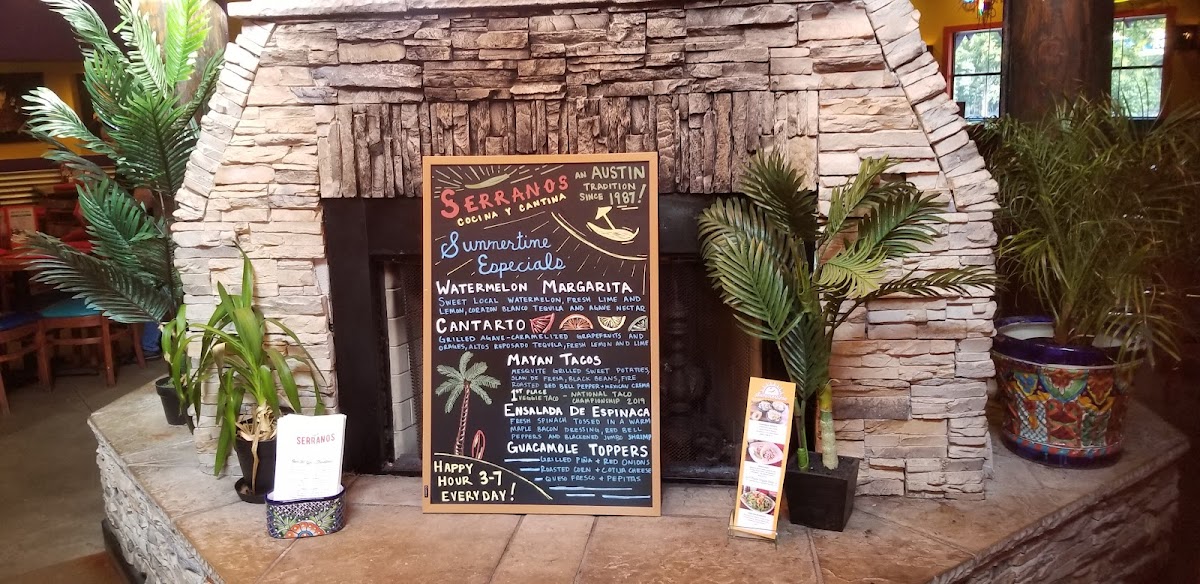 SERRANOS
COCINA Y CANTINA
AN AUSTIN
TRADITION
SINCE 1987!
Summertime
Especials
WATERMELON MARGARITA
SWEET LOCAL WATERMELON, FRESH LIME AND
LEMON, CORAZON BLANCO TEQUILA AND AGAVE NECTAR
CANTARTO
GRILLED AGAVE-CARAMELIZED GRAPEFRUITS AND
ORAGES, ALTOS REPOSADO TEQUILA, FRESH LEMON AND LIME
MAYAN TACOS
MESQUITE GRILLED SWEET POTATOES,
SLAW DE FRESA, BLACK BEANS, FIRE
ROASTED RED BELL PEPPER + MEXICAN CREMA
1ST PLACE - NATIONAL TACO
VEGGIE TACO CHAMPIONSHIP 2019
ENSALADA DE ESPINACA
FRESH SPINACH TOSSED IN A WARM
MAPLE BACON DRESSING, RED BELL
PEPPERS AND BLACKENED JUMBO SHRIMP
GUACAMOLE TOPPERS
GRILLED PIÑA + RED ONIONS
ROASTED CORN + COTIJA CHEESE
QUESO FRESCO + PEPITAS
HAPPY
HOUR 3-7
EVERYDAY!
SERRANOS